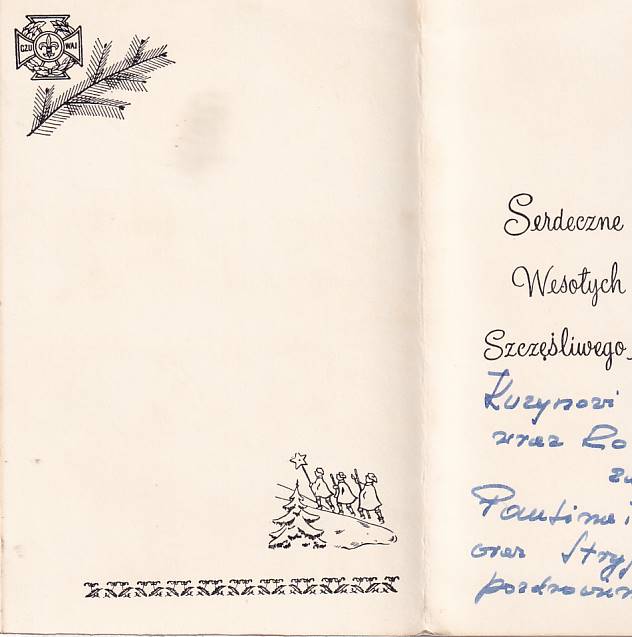 CZU WAJ
Serdeczne
Wesołych
Szczęśliwego
Kuzynowi
wraz
Paulina i
oraz Stry